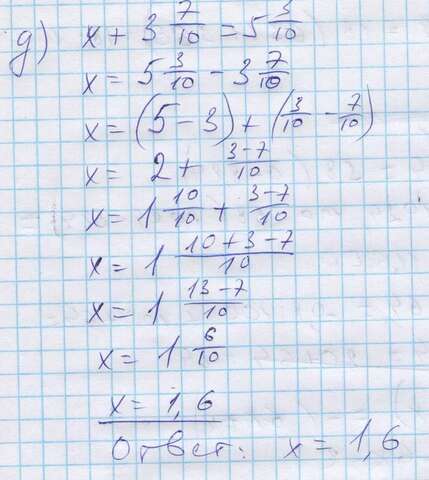 д) x + 3 7/10 = 5 3/10
x = 5 3/10 - 3 7/10
x = (5 - 3) + (3/10 - 7/10)
x = 2 + 3-7/10
x = 1 10/10 + 3-7/10
x = 1 10+3-7/10
x = 1 13-7/10
x = 1 6/10
x = 1,6
Ответ: x = 1,6